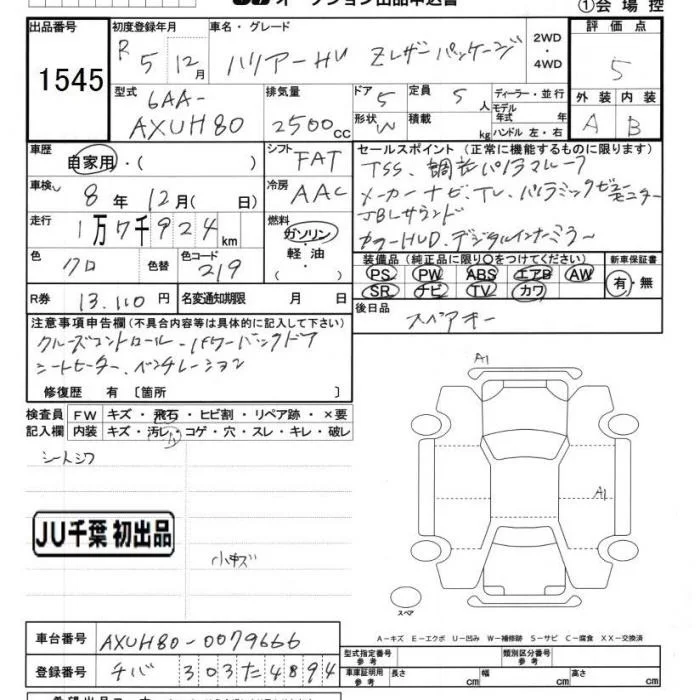 オークション出品申込書
①会場控
出品番号 1545
初度登録年月 R 5 12月
車名・グレード ハリアーHV Zレザーパッケージ
2WD・4WD
評価点 5
型式 6AA-AXUH80
排気量 2500cc
ドア 5 形状 W
定員 5人
積載 kg
ディーラー・並行
モデル年式 年式
ハンドル 左・右
外装 A 内装 B
車歴 自家用・( )
シフト FAT
セールスポイント (正常に機能するものに限ります)
TSS、調光パノラマルーフ
メーカーナビ、TV、パノラミックビューモニター
JBLサウンド
カラーHUD、デジタルインナーミラー
車検 8年12月( 日)
冷房 AAC
走行 1万7千924km
燃料 ガソリン・軽油・( )
色 クロ 色替 色コード 219
装備品 (純正品に限り○をつけてください)
PS PW ABS エアB AW
SR ナビ TV カワ
新車保証書 有・無
R券 13,110円
名変通知期限 月 日
後日品 スペアキー
注意事項申告欄 (不具合内容等は具体的に記入して下さい)
クルーズコントロール、パワーバックドア
シートヒーター、ベンチレーション
修復歴 有 [箇所 ]
検査員記入欄
FW キズ・飛石・ヒビ割・リペア跡・×要
内装 キズ・汚レ・コゲ・穴・スレ・キレ・破レ
シートシワ
JU千葉 初出品
小キズ
A1
A1
スペア
A-キズ E-エクボ U-凹み W-補修跡 S-サビ C-腐食 XX-交換済
車台番号 AXUH80-0079666
登録番号 チバ 303た4894
型式指定番号 参考
類別区分番号 参考
車庫証明用参考 長さ cm 幅 cm 高さ cm